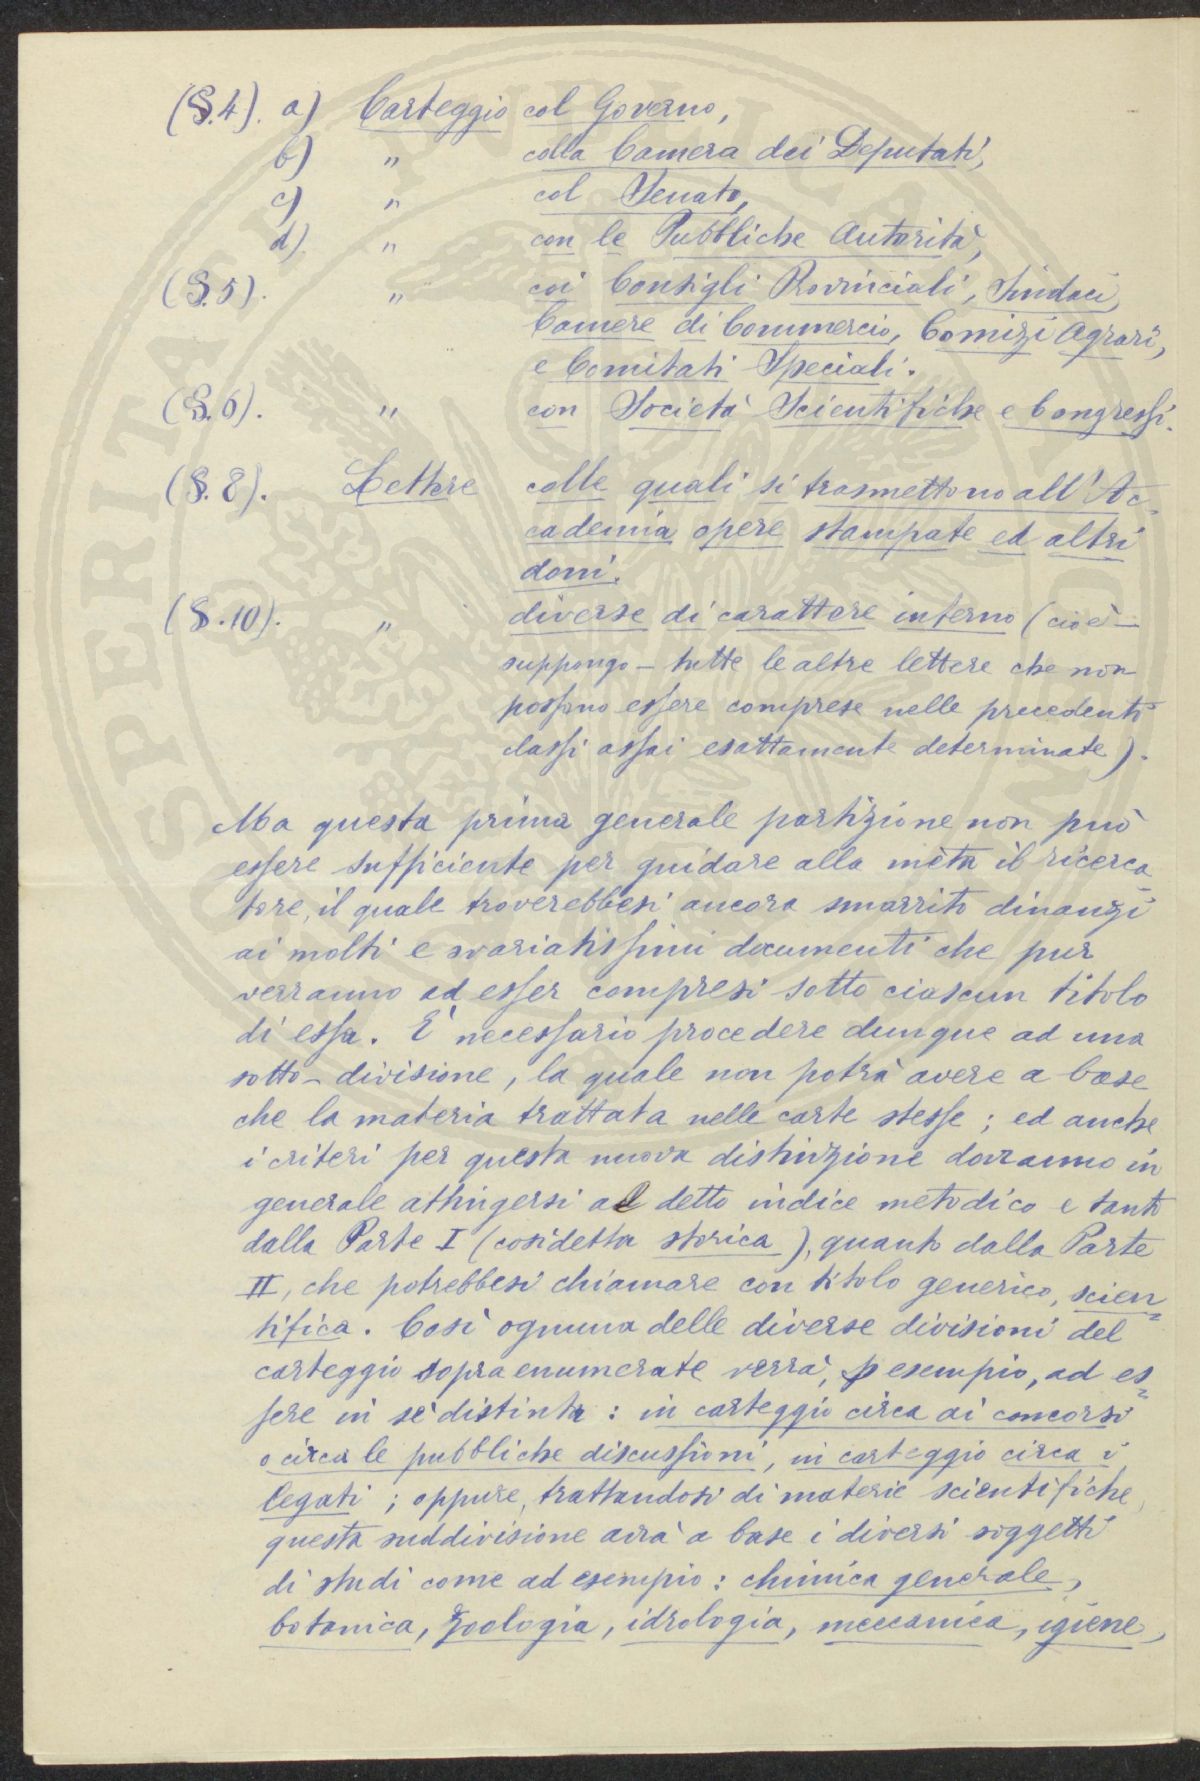 (§.4). a) Carteggio col Governo,
b) „ colla Camera dei Deputati,
c) „ col Senato,
d). „ con le Pubbliche Autorità,
(§.5). „ coi Consigli Provinciali, Sindaci,
Camere di Commercio, Comizi Agrari,
e Comitati Speciali.
(§.6). „ con Società Scientifiche e Congressi.
(§.8). Lettere colle quali si trasmettono all'Ac-
cademia opere stampate ed altri
doni.
(§.10). „ diverse di carattere interno (cioè -
suppongo - tutte le altre lettere che non
possono essere comprese nelle precedenti
classi assai esattamente determinate).
Ma questa prima generale partizione non può
essere sufficiente per guidare alla mèta il ricerca-
tore, il quale troverebbesi ancora smarrito dinanzi
ai molti e svariatissimi documenti che pur
verranno ad esser compresi sotto ciascun titolo
di essa. E' necessario procedere dunque ad una
sotto-divisione, la quale non potrà avere a base
che la materia trattata nelle carte stesse; ed anche
i criteri per questa nuova distinzione dovranno in
generale attingersi al detto indice metodico e tanto
dalla Parte I (cosidetta storica), quanto dalla Parte
II, che potrebbesi chiamare con titolo generico, scien=
tifica. Così ognuna delle diverse divisioni del
carteggio sopra enumerate verrà, p esempio, ad es=
sere in sè distinta: in carteggio circa ai concorsi
o circa le pubbliche discussioni, in carteggio circa i
legati; oppure, trattandosi di materie scientifiche,
questa suddivisione avrà a base i diversi soggetti
di studi come ad esempio: chimica generale,
botanica, zoologia, idrologia, meccanica, igiene,
OSPERITAS PUBLICA